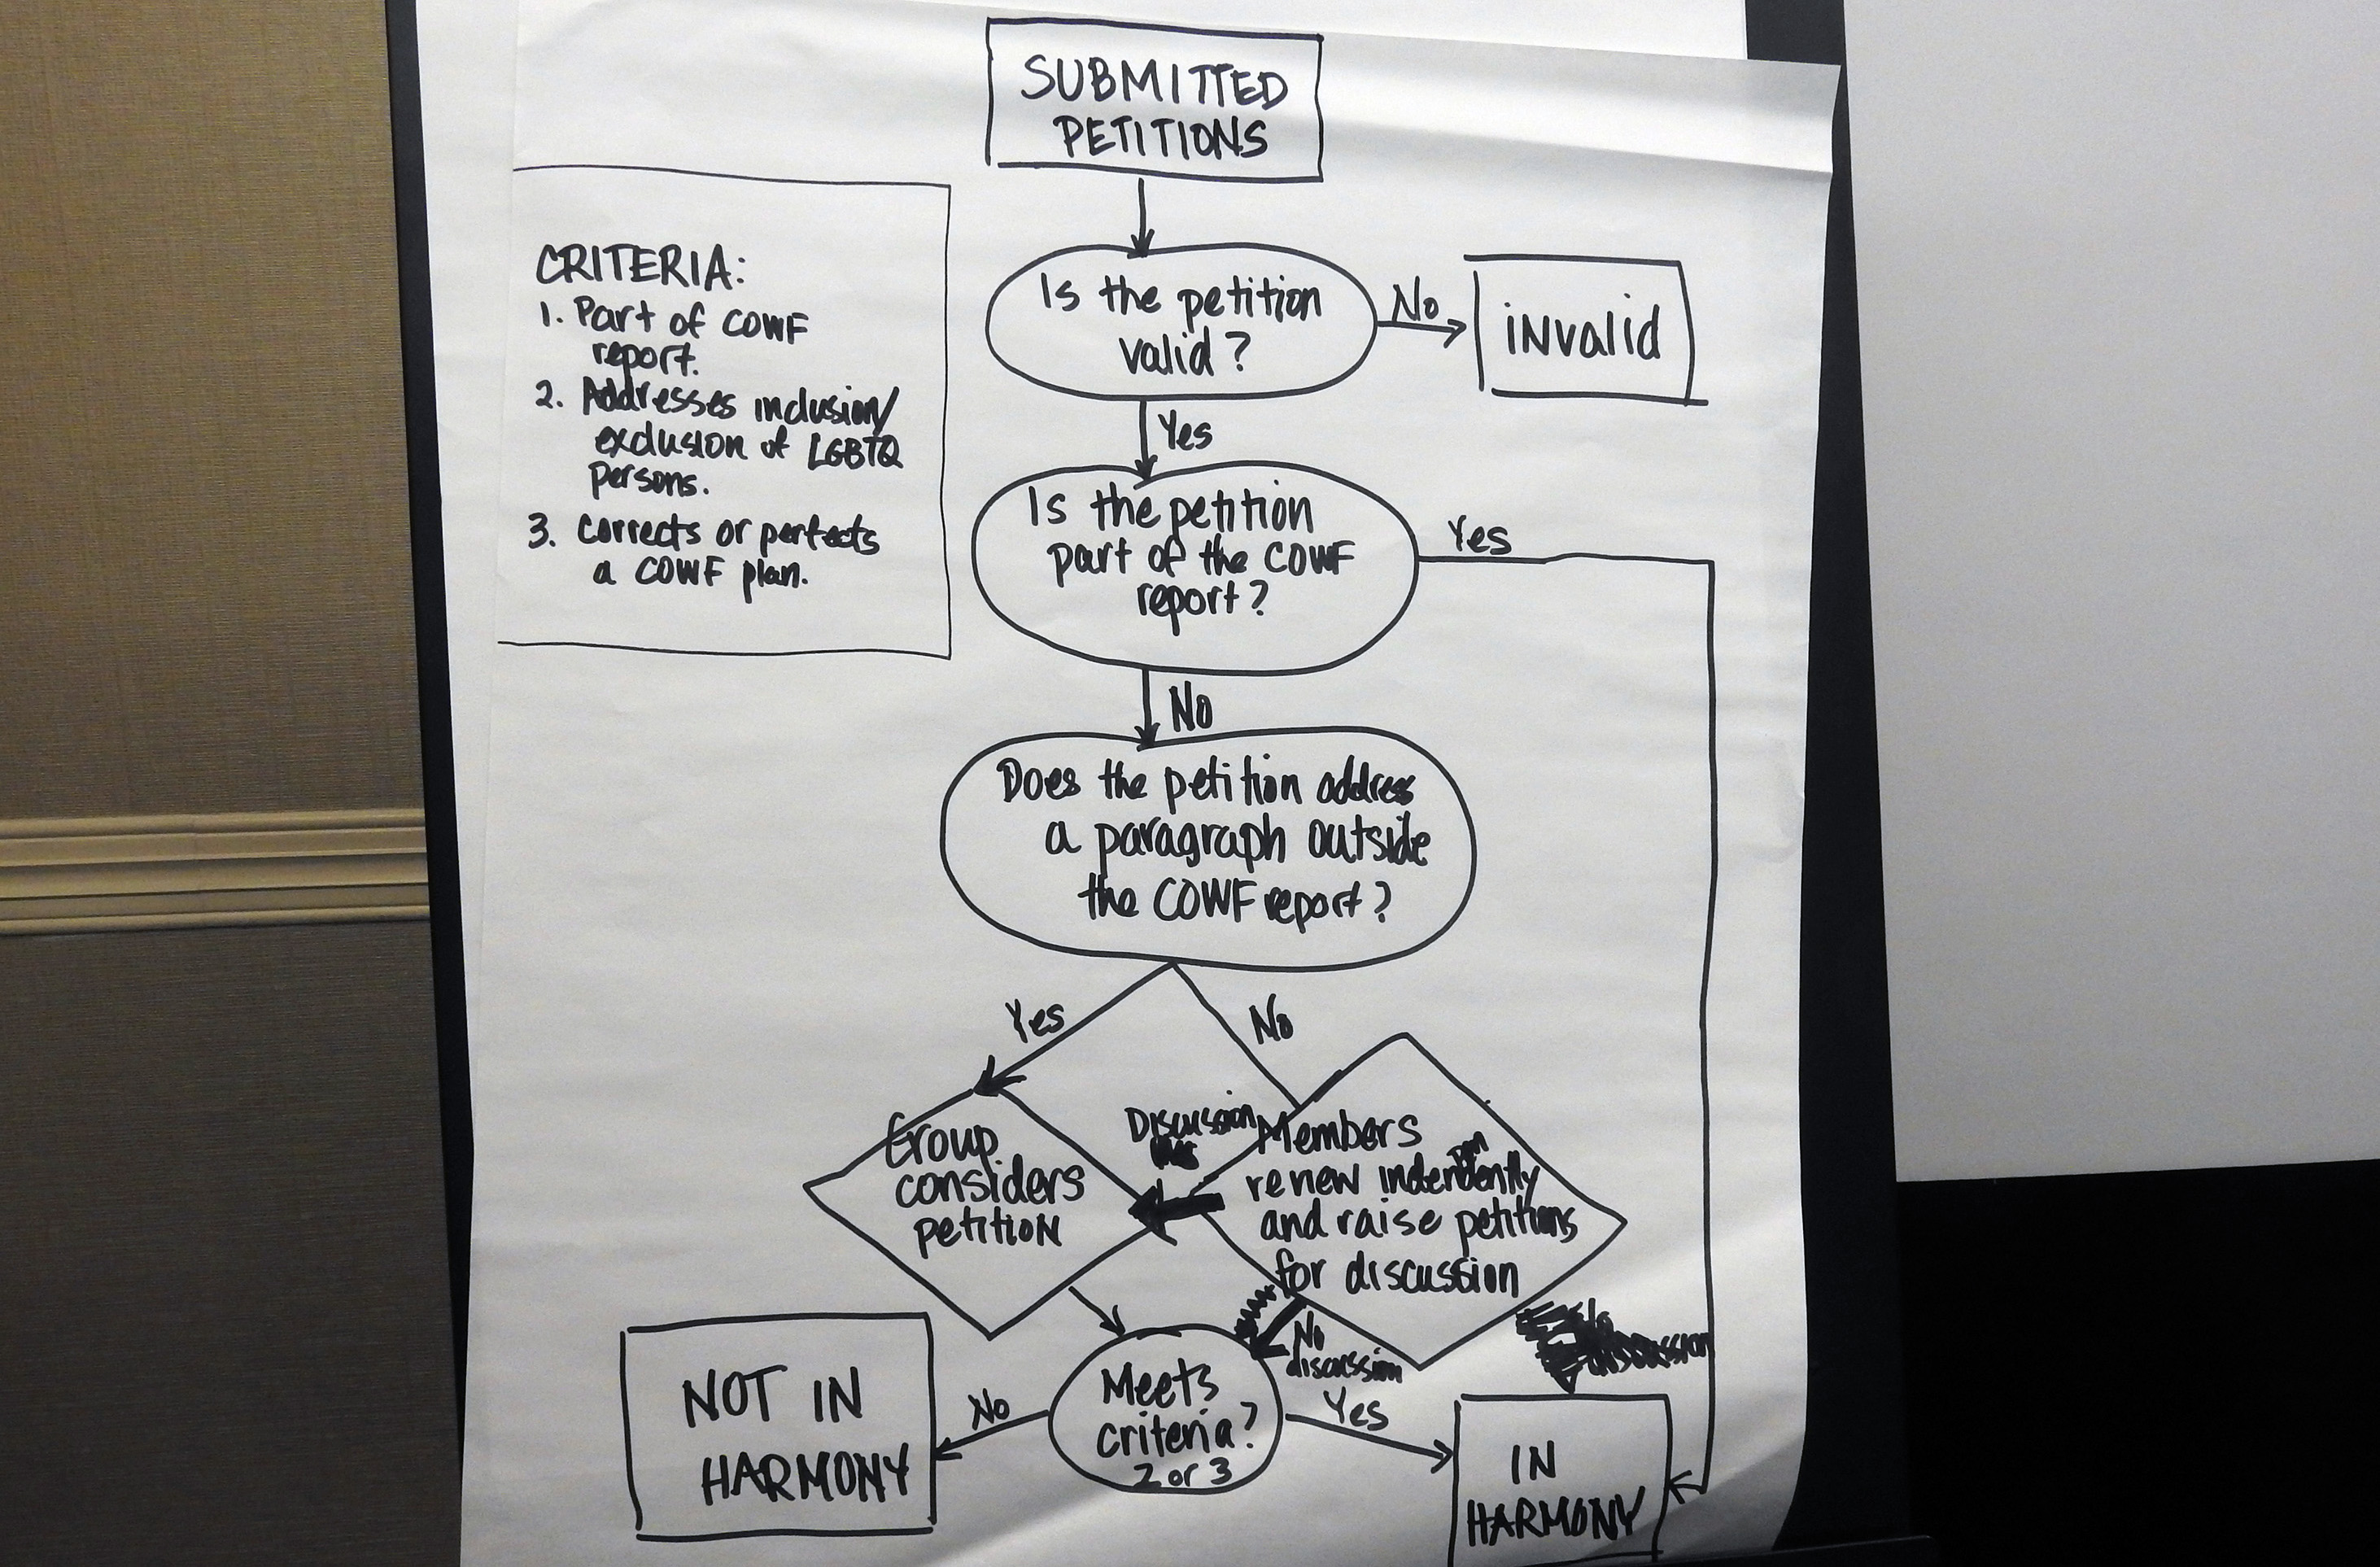 SUBMITTED
PETITIONS
CRITERIA:
1. Part of COWF
report.
2. Addresses inclusion/
exclusion of LGBTQ
persons.
3. Corrects or perfects
a COWF plan.
Is the petition
valid?
No
invalid
Yes
Is the petition
part of the COWF
report?
Yes
No
Does the petition address
a paragraph outside
the COWF report?
Yes
No
Group
considers
petition
Discussion
Members
review
and raise petitions
for discussion
No
discussion
Meets
criteria?
2 or 3
No
NOT IN
HARMONY
Yes
IN
HARMONY